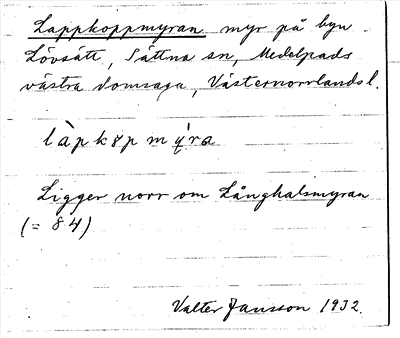 Lappkoppmyran myr på byn
Lövsått, Sättna sn, Medelpads
västra domsaga, Västernorrlands l.
làpkɤpmý̨ra
Ligger norr om Långhalsmyran
(= 84)
Valter Jansson 1932.